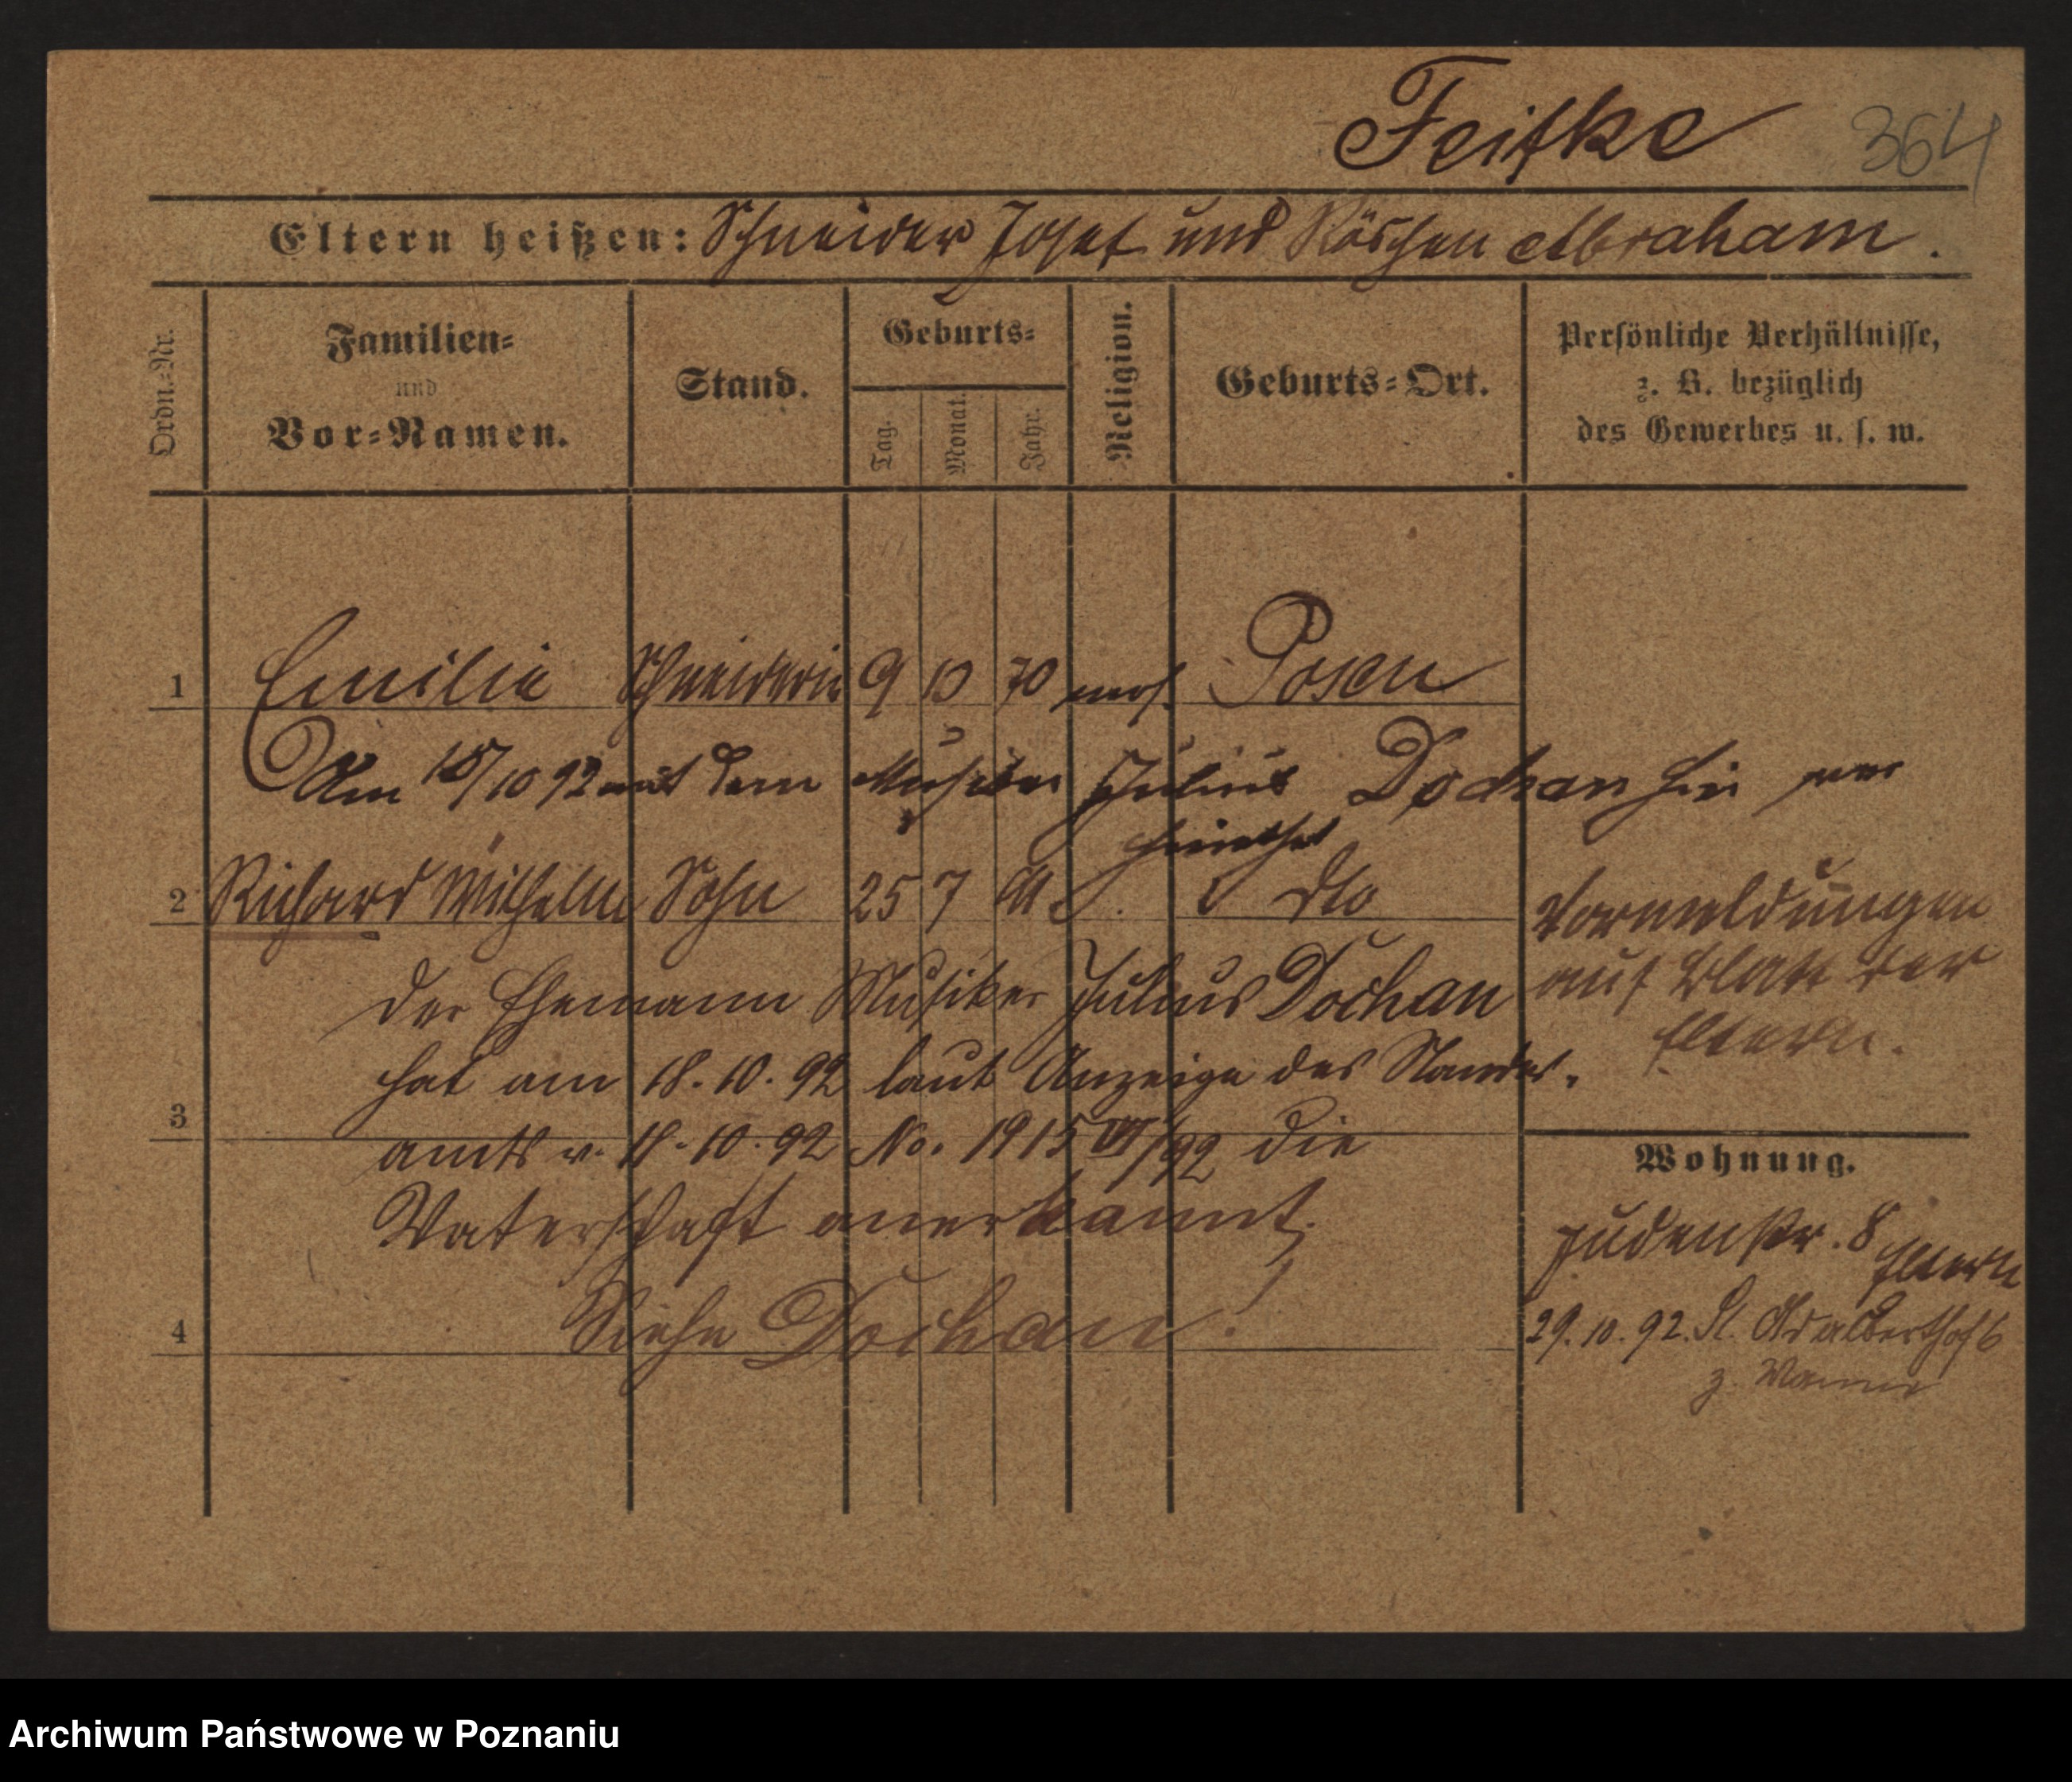 Feitke 364
Eltern heißen: Schneider Josef und Röschen Abraham.
Ordn.-Nr.
Familien-
und
Vor-Namen.
Stand.
Geburts-
Tag. Monat. Jahr.
Religion.
Geburts-Ort.
Persönliche Verhältnisse,
z. B. bezüglich
des Gewerbes u. s. w.
1 Emilie Schneiderin 9 10 70 mos. Posen
Am 18/10 92 mit dem Musiker Julius Dochan hier ver
heirathet
2 Richard Wilhelm Sohn 25 7 91 dto
Vormeldungen
auf Blatt der
Eltern.
der Ehemann Musiker Julius Dochan
hat am 18. 10. 92 laut Anzeige des Standes-
3
amts v. 18. 10. 92 No. 1915 VI/92 die
Vaterschaft anerkannt.
4 Siehe Dochan!
Wohnung.
Judenstr. 8 Eltern
29. 10. 92. St. Adalberthof 6
Archiwum Państwowe w Poznaniu